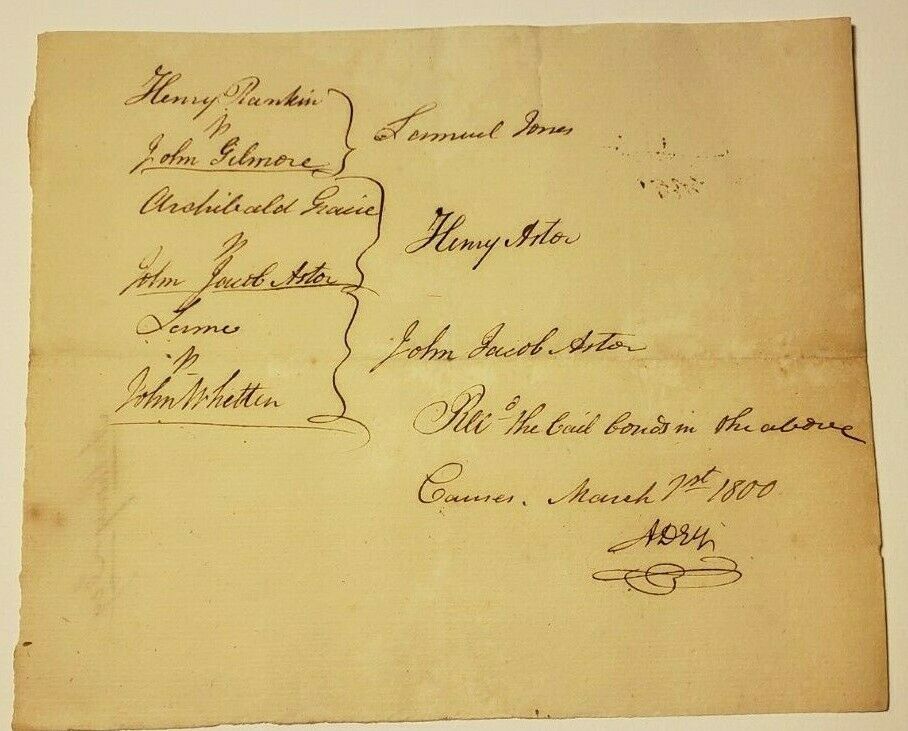 Henry Rankin
v
John Gilmore
Samuel Jones
Archibald Gracie
v
John Jacob Astor
Henry Astor
Same
v
John Whetten
John Jacob Astor
Recd the bail bonds in the above
Causes. March 1st 1800